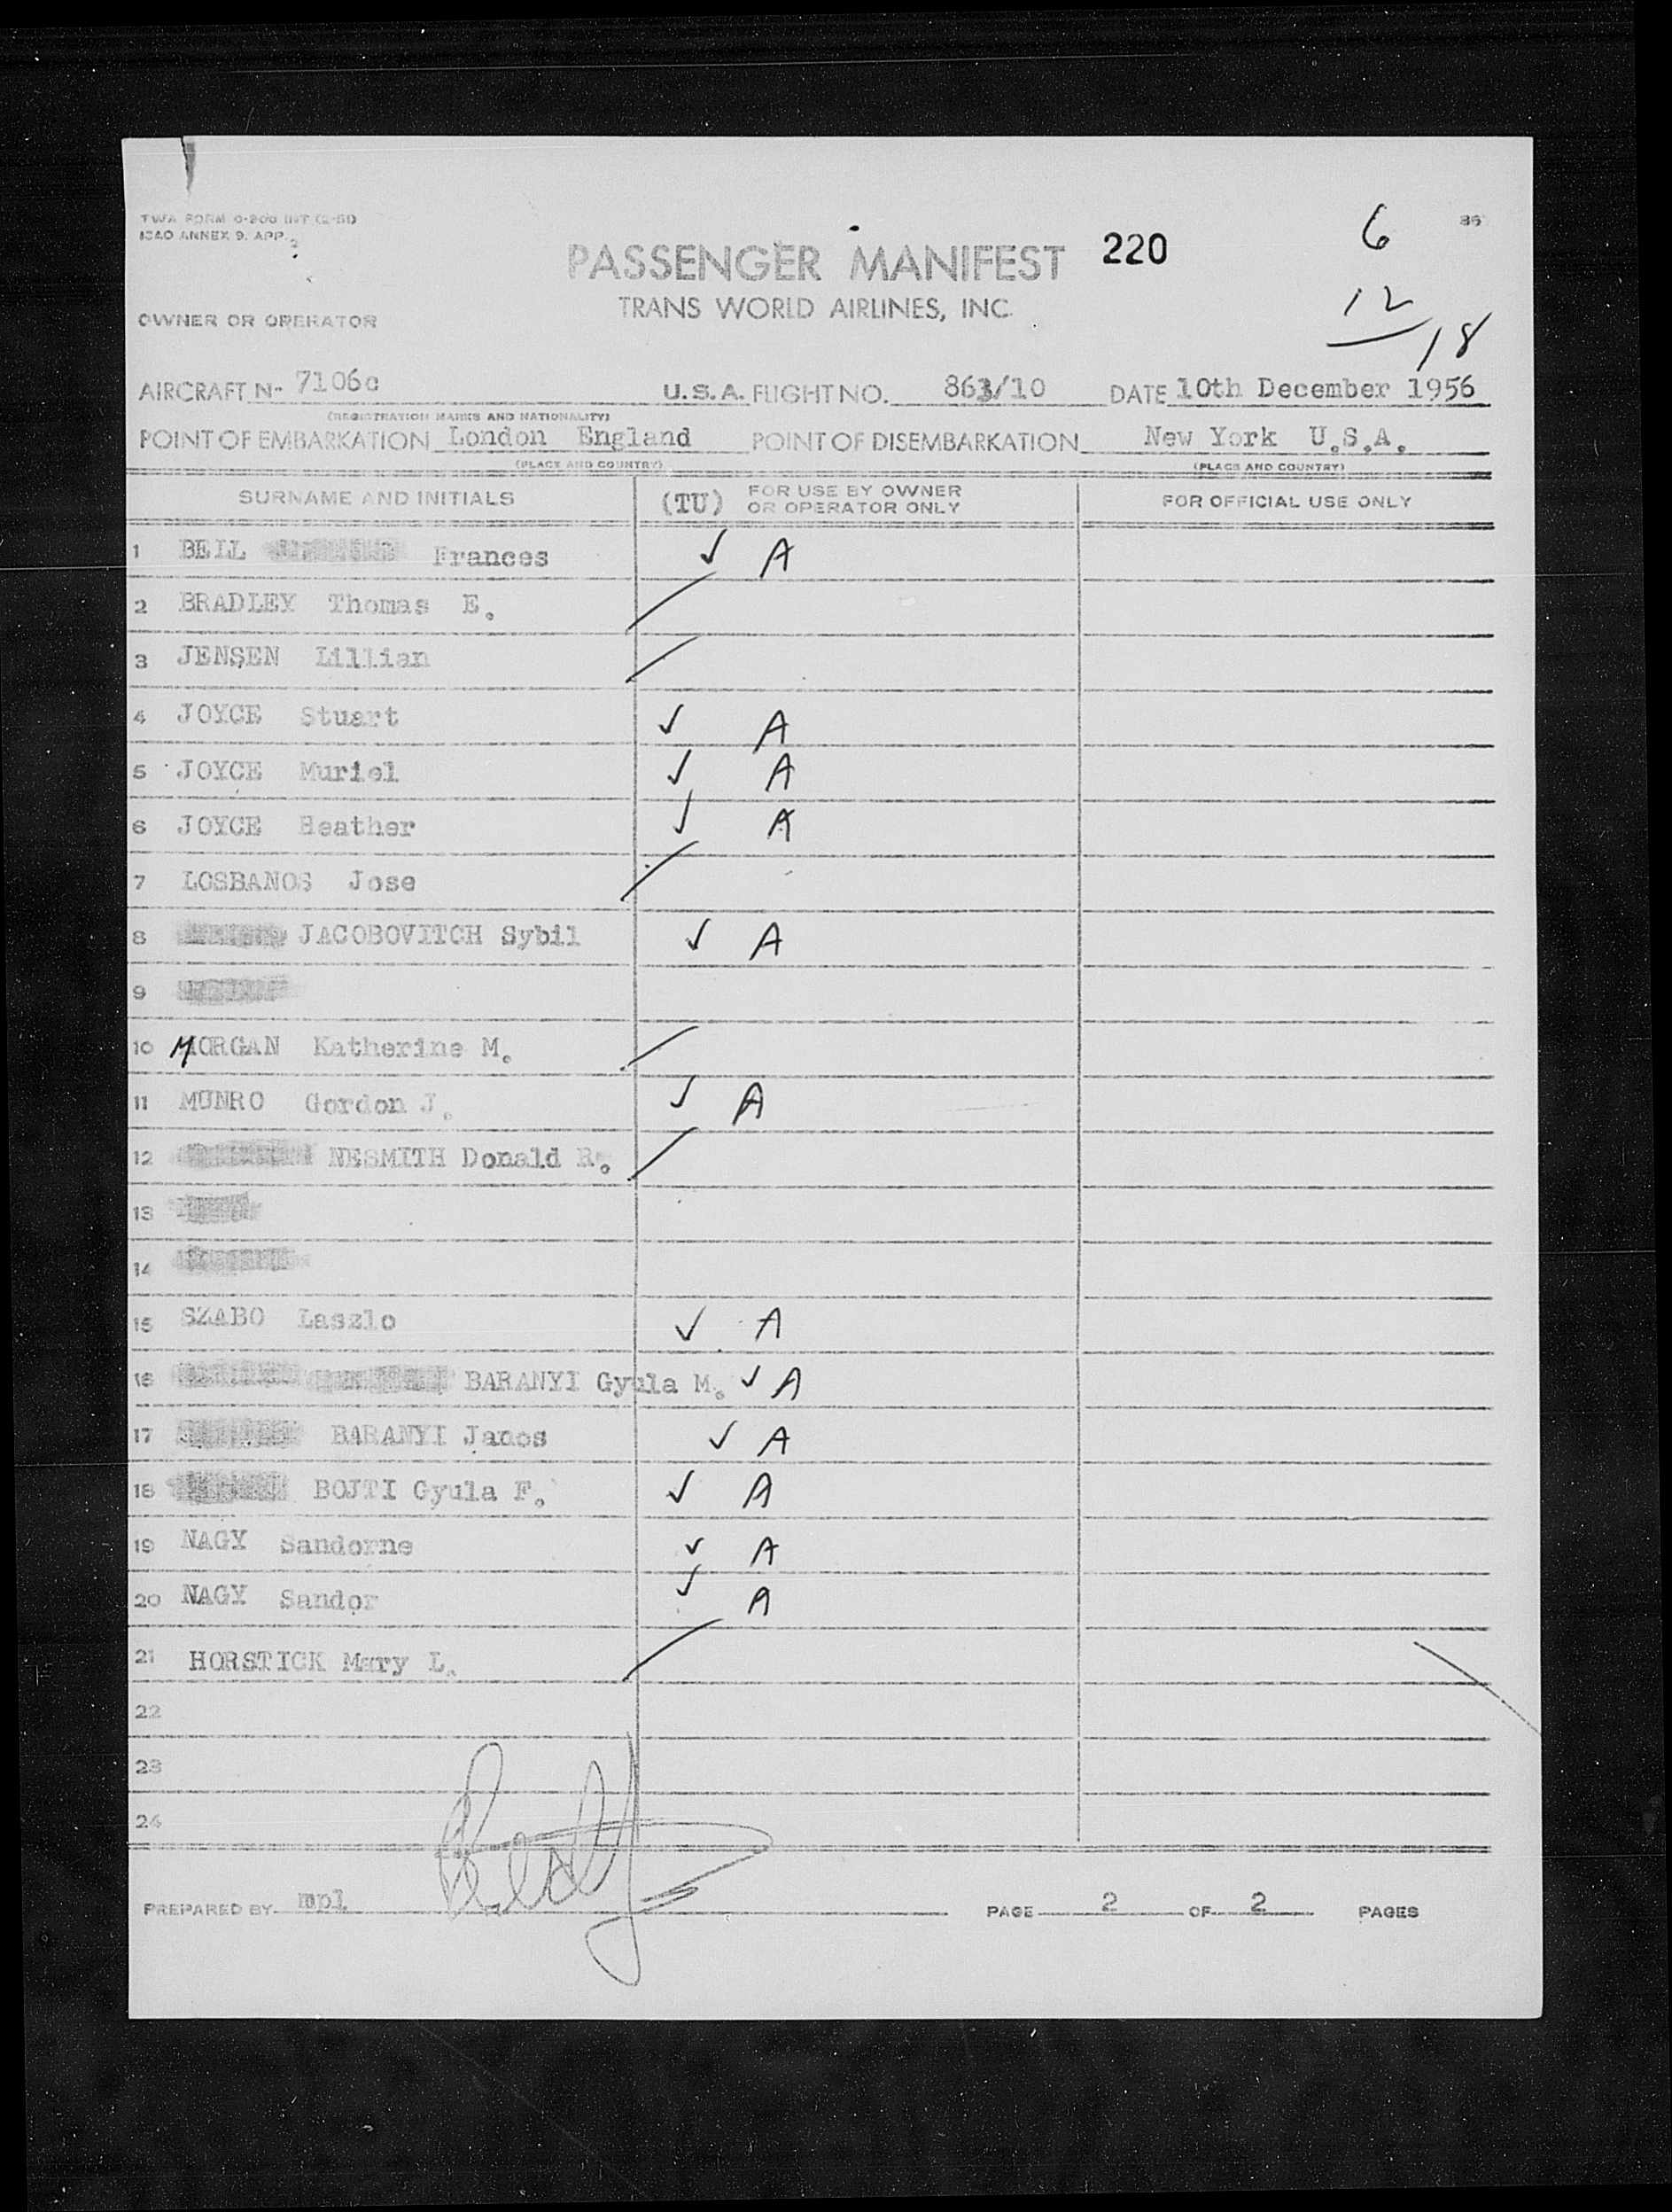 TWA FORM O-200 INT (2-51)
ICAO ANNEX 9. APP. 2
6
PASSENGER MANIFEST 220
12
TRANS WORLD AIRLINES, INC.
18
OWNER OR OPERATOR
AIRCRAFT Nº 7106c U.S.A. FLIGHT NO. 863/10 DATE 10th December 1956
(REGISTRATION MARKS AND NATIONALITY)
POINT OF EMBARKATION London England POINT OF DISEMBARKATION New York U.S.A.
(PLACE AND COUNTRY) (PLACE AND COUNTRY)
SURNAME AND INITIALS (TU) FOR USE BY OWNER OR OPERATOR ONLY FOR OFFICIAL USE ONLY
1 BELL Frances ✓ A
2 BRADLEY Thomas E.
3 JENSEN Lillian
4 JOYCE Stuart ✓ A
5 JOYCE Muriel ✓ A
6 JOYCE Heather ✓ A
7 LOSBANOS Jose
8 JACOBOVITCH Sybil ✓ A
9
10 MORGAN Katherine M.
11 MUNRO Gordon J. ✓ A
12 NESMITH Donald R.
13
14
15 SZABO Laszlo ✓ A
16 BARANYI Gyula M. ✓ A
17 BARANYI Janos ✓ A
18 BOJTI Gyula F. ✓ A
19 NAGY Sandorne ✓ A
20 NAGY Sandor ✓ A
21 HORSTICK Mary L.
22
23
24
PREPARED BY mpl. PAGE 2 OF 2 PAGES